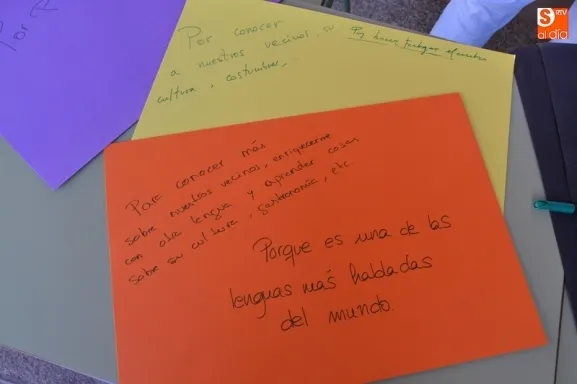 Por
Por conocer
a nuestros vecinos, su
cultura, costumbres, ...
Para conocer más
sobre nuestros vecinos, enriquecerme
con otra lengua y aprender cosas
sobre su cultura, gastronomía, etc.
Porque es una de las
lenguas más habladas
del mundo.
S
al día